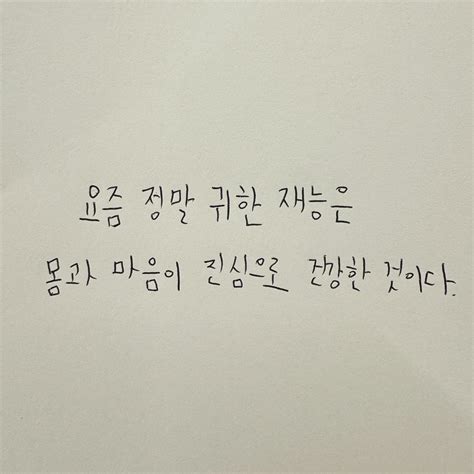 요즘 정말 귀한 재능은
몸과 마음이 진심으로 건강한 것이다.